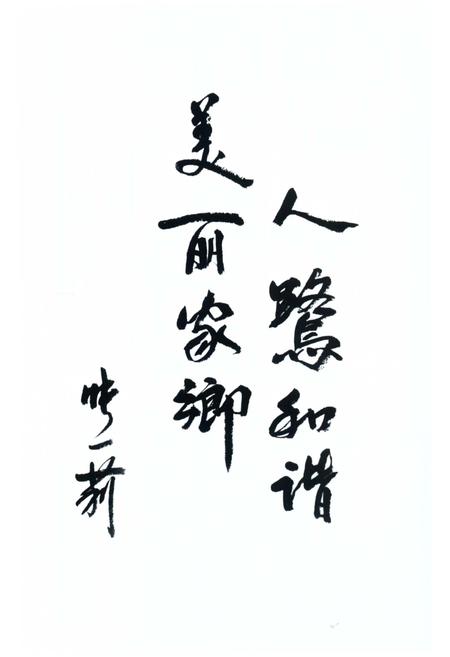 人鹭和谐
美丽家乡
张一莉